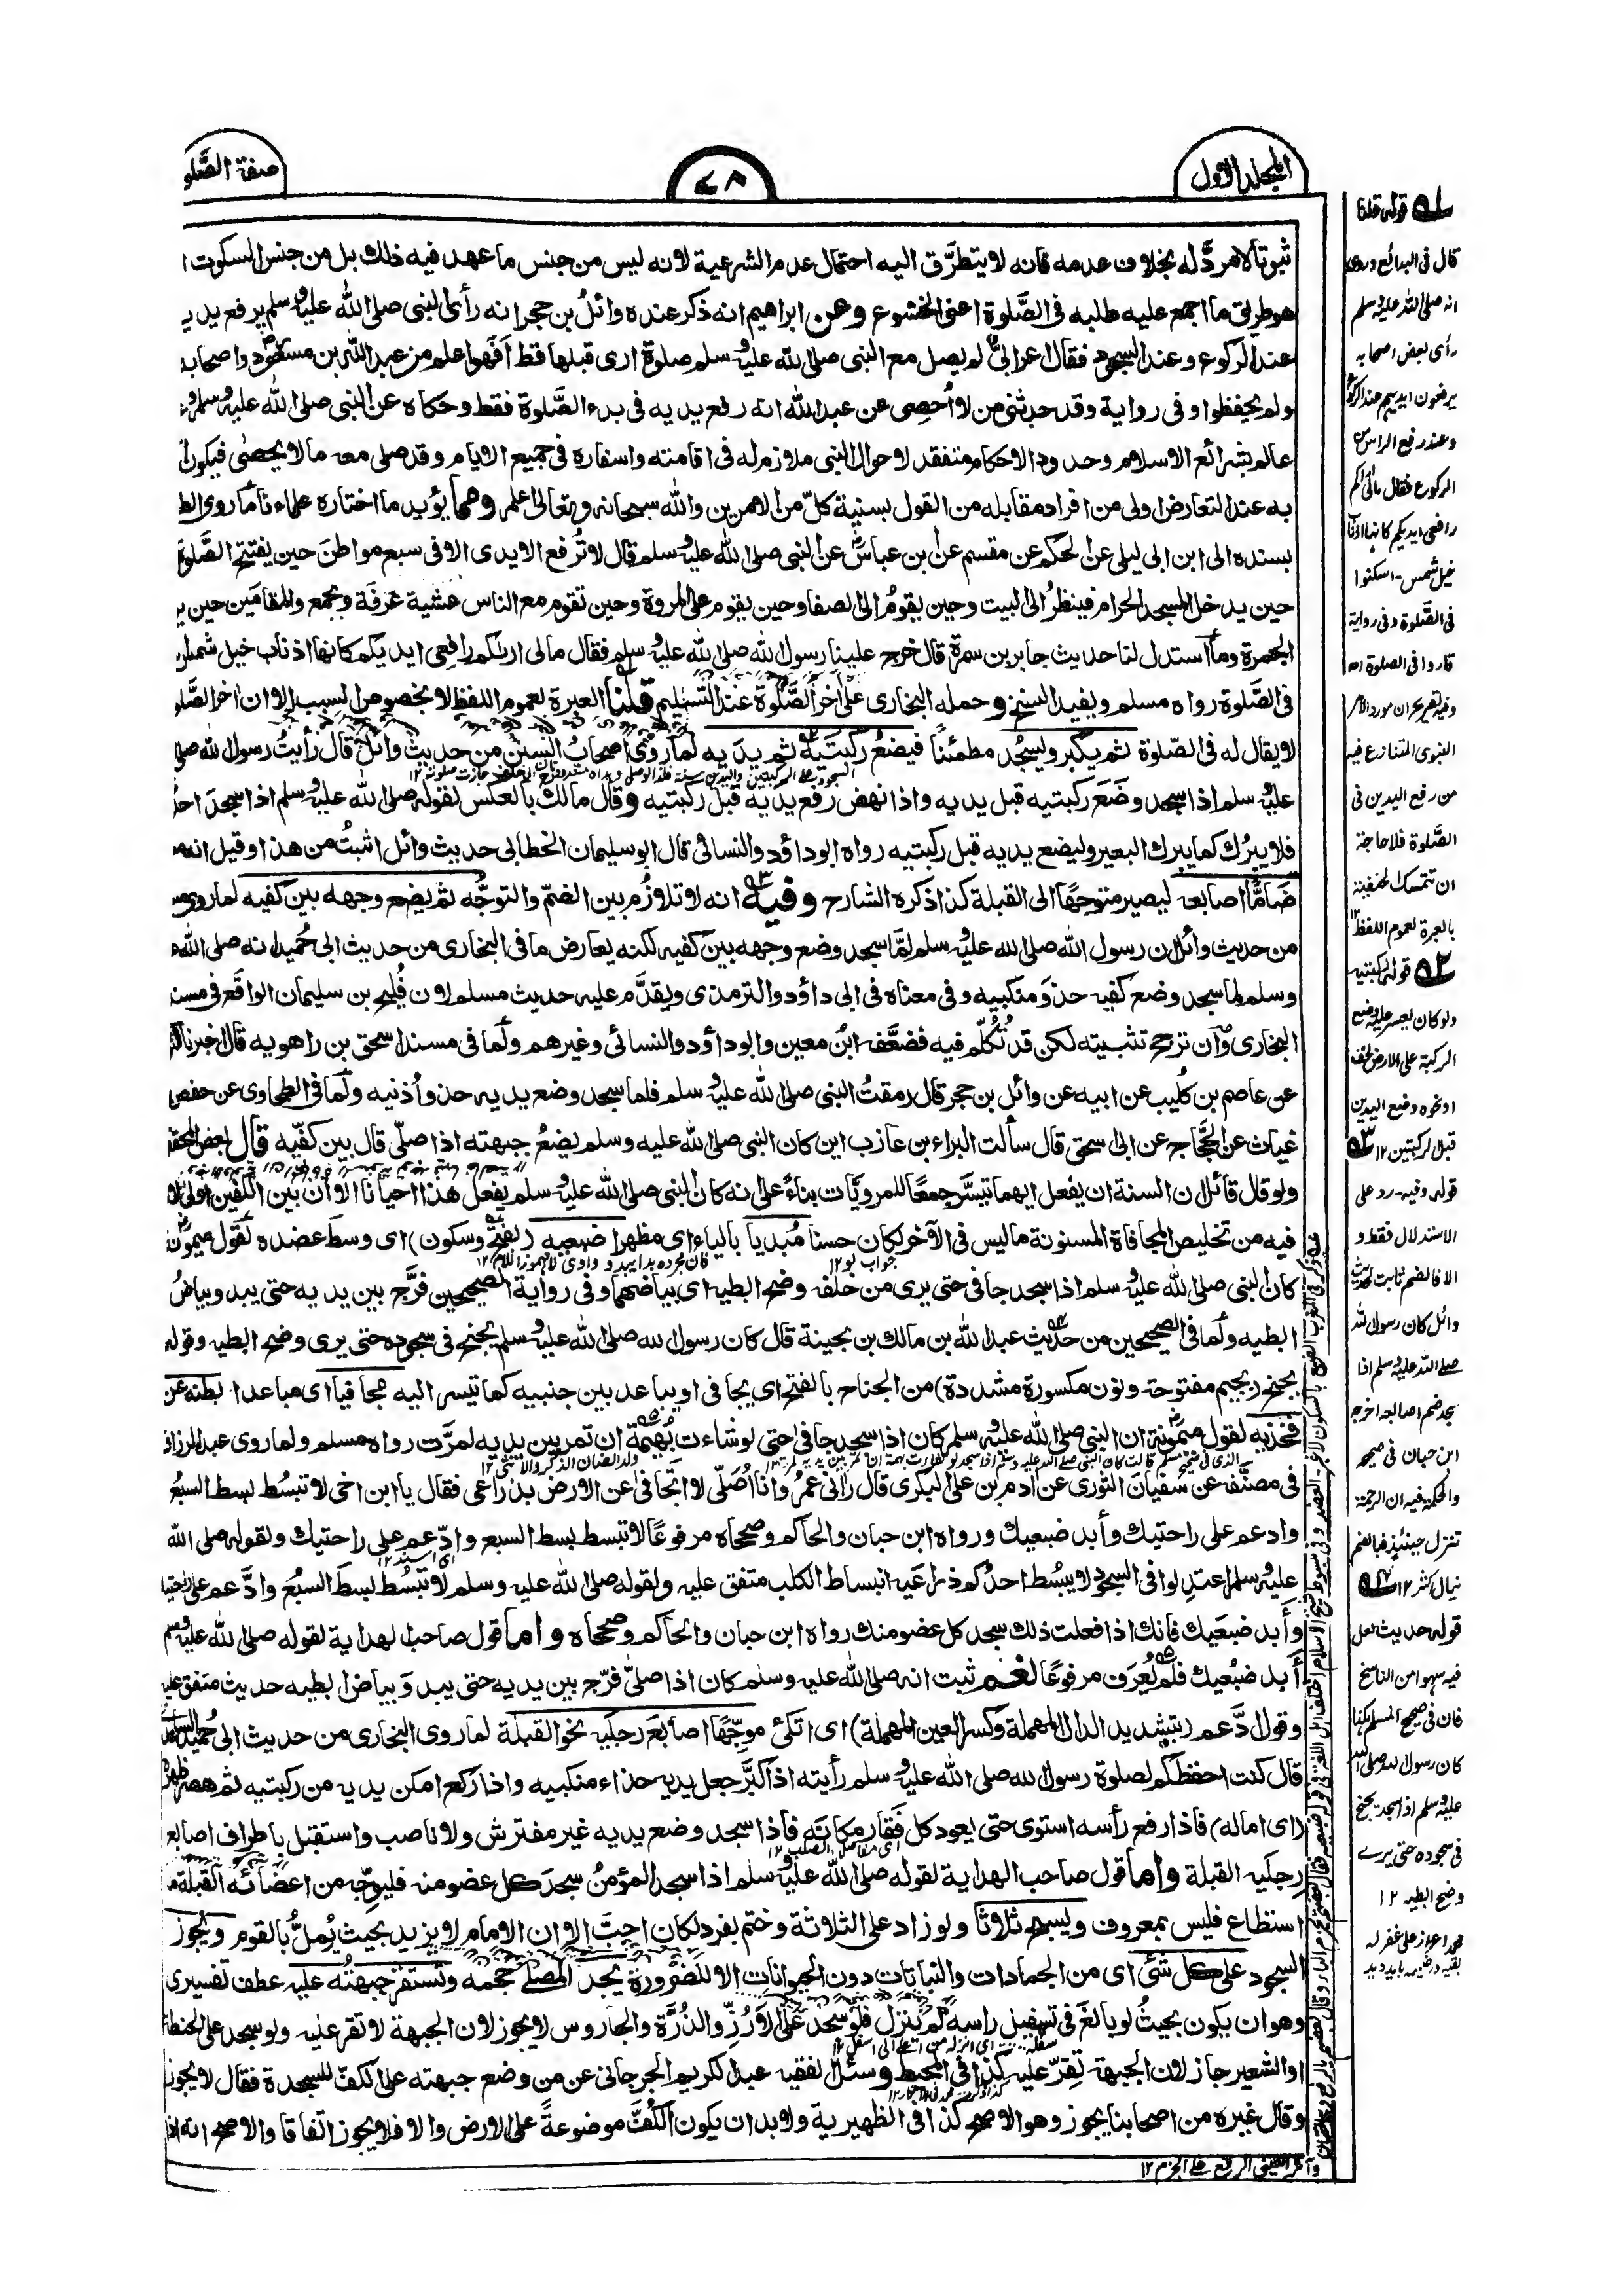 المجلد الاول
٧٨
صفة الصَّلو
ثبوتا لا مردَّ له بخلاف عدمه فانه لا يتطرَّق اليه احتمال عدم الشرعية لانه ليس من جنس ما عهد فيه ذلك بل من جنس السكوت ا
هو طريق ما اجمع عليه طلبه فى الصَّلوة اعنى الخشوع وعن ابراهيم انه ذكر عنده وائلُ بن حجر انه رأى النبى صلى الله عليه وسلم يرفع يديه
عند الركوع وعند السجود فقال اعرابىٌّ لم يصل مع النبى صلى الله عليه وسلم صلوة ارى قبلها قط اَفَهو اعلم من عبد الله بن مسعود واصحابه
ولم يحفظوا وفى رواية وقد حدثنى من لا اُحصِى عن عبد الله انه رفع يديه فى بدء الصَّلوة فقط وحكاه عن النبى صلى الله عليه وسلم و
عالم بشرائع الاسلام وحدود الاحكام متفقد لاحوال النبى ملازم له فى اقامته واسفاره فى جميع الايام وقد صلى معه ما لا يحصى فيكون
به عند التعارض اولى من افراد مقابله من القول بسنية كلّ من الامرين والله سبحانه وتعالى اعلم ومما يؤيد ما اختاره علماءنا ما روى الط
بسنده الى ابن ابى ليلى عن الحكم عن مقسم عن ابن عباس عن النبى صلى الله عليه وسلم قال لا تُرفع الايدى الا فى سبع مواطنَ حين يفتتح الصَّلوة
حين يدخل المسجد الحرام فينظرُ الى البيت وحين يقومُ الى الصفا وحين يقوم على المروة وحين تقوم مع الناس عشية عرفة وبجمع والمقامَين حين ير
الجمرة وما استدل لنا حديث جابر بن سمرة قال خرج علينا رسول الله صلى الله عليه وسلم فقال مالى اراكم رافعى ايديكم كانها اذناب خيل شمس
فى الصَّلوة رواه مسلم ويفيد النسخ وحمله البخارى على اخر الصَّلوة عند التسليم قلنا العبرة لعموم اللفظ لا بخصوص السبب الا ان اخر الصَّلو
لا يقال له فى الصّلوة ثم يكبر ويسجد مطمئناً فيضعُ ركبتَيه ثم يدَيه لما روى اصحابُ السنن من حديث وائل قال رأيتُ رسول الله صلى
عليه وسلم اذا سجد وضَعَ ركبتيه قبل يديه واذا نهض رفع يدَيه قبل ركبتيه وقال مالك بالعكس لقوله صلى الله عليه وسلم اذا سجدَ احدُ
فلا يبرُك كما يبرك البعير وليضع يديه قبل ركبتيه رواه ابو داؤد والنسائى قال ابو سليمان الخطابى حديث وائل اثبتُ من هذا وقيل انه
ضَامًّا اصابعه ليصير متوجهًا الى القبلة كذا ذكره الشارح وفيه انه لا تلازُم بين الضمّ والتوجُّه ثم يضع وجهه بين كفيه لما روى
من حديث وائل ان رسول الله صلى الله عليه وسلم لمَّا سجد وضع وجهه بين كفيه لكنه يعارض ما فى البخارى من حديث ابى حُميد انه صلى الله
وسلم لما سجد وضع كفيه حذوَ منكبيه وفى معناه فى ابى داؤد والترمذى ويقدَّم عليه حديث مسلم لان فُليح بن سليمان الواقع فى مسند
البخارى وان ترجح تثبيته لكن قد تُكُلِّم فيه فضعَّفه ابنُ معين وابو داؤد والنسائى وغيرهم ولما فى مسند اسحق بن راهويه قال اخبرنا
عن عاصم بن كُليب عن ابيه عن وائل بن حجر قال رمقتُ النبى صلى الله عليه وسلم فلما سجد وضع يديه حذو اُذنيه ولما فى الطحاوى عن حفص
غياث عن الحجاج عن ابى اسحق قال سألت البراء بن عازب اين كان النبى صلى الله عليه وسلم يضعُ جبهته اذا صلّى قال بين كفّيه قال بعض المحقق
ولو قال قائل ان السنة ان يفعل ايهما تيسَّر جمعًا للمرويَّات بناءً على انه كان النبى صلى الله عليه وسلم يفعل هذا احيانا الا ان بين الكفين اولى لان
فيه من تخليص المجافاة المسنونة ما ليس فى الآخر لكان حسنا مُبديا بالياء اى مظهرا ضبعيه (بفتح وسكون) اى وسط عضده لقول ميمونة
كان النبى صلى الله عليه وسلم اذا سجد جافى حتى يرى من خلفه وضح ابطيه اى بياضهما وفى رواية الصحيحين فرَّج بين يديه حتى يبدو بياضُ
ابطيه ولما فى الصحيحين من حديث عبد الله بن مالك بن بحينة قال كان رسول الله صلى الله عليه وسلم يجنح فى سجوده حتى يرى وضح ابطيه وقوله
يجنح (بجيم مفتوحة ونون مكسورة مشددة) من الجناح بالفتح اى يجافى او يباعد بين جنبيه كما تيسر اليه مجافيا اى مباعدا بطنه عن
فخذيه لقول ميمونة ان النبى صلى الله عليه وسلم كان اذا سجد جافى حتى لو شاءت بُهيمة ان تمر بين يديه لمرَّت رواه مسلم ولما روى عبد الرزاق
فى مصنَّفه عن سفيان الثورى عن ادم بن على البكرى قال رانى عمرُ وانا اُصَلّى لا اتجافى عن الارض بذراعى فقال يا ابن اخى لا تبسُط بسط السبُع
وادعم على راحتيك وأبد ضبعيك ورواه ابن حبان والحاكم وصححاه مرفوعًا لا تبسط بسط السبع وادّعم على راحتيك ولقوله صلى الله
عليه وسلم اعتدِلوا فى السجود لا يبسُط احدُكم ذراعَيه انبساط الكلب متفق عليه ولقوله صلى الله عليه وسلم لا تبسُط بسطَ السبُع وادَّعم على راحتيك
وأبد ضبعَيك فانك اذا فعلت ذلك سجد كل عضو منك رواه ابن حبان والحاكم وصححاه واما قول صاحب الهداية لقوله صلى الله عليه وسلم
أبد ضبُعيك فلم يُعرَف مرفوعًا نعم ثبت انه صلى الله عليه وسلم كان اذا صلى فرّج بين يديه حتى يبدوَ بياض ابطيه حديث متفق عليه
وقول دَّعم (بتشديد الدال المهملة وكسر العين المهملة) اى اتكئ موجّهًا اصابعَ رجليه نحو القبلة لما روى البخارى من حديث ابى حُميد الساعدى
قال كنت احفظكم لصلوة رسول الله صلى الله عليه وسلم رأيته اذا كبَّر جعل يديه حذاء منكبيه واذا ركع امكن يديه من ركبتيه ثم هصر ظهره
(اى اماله) فاذا رفع رأسه استوى حتى يعود كل فقار مكانه فاذا سجد وضع يديه غير مفترش ولا ناصب واستقبل باطراف اصابع
رجليه القبلة واما قول صاحب الهداية لقوله صلى الله عليه وسلم اذا سجد المؤمنُ سجدَ كل عضو منه فليوجّه من اعضائه القبلة ما
استطاع فليس بمعروف ويسبح ثلاثا ولو زاد على الثلاثة وختم بفرد لكان احبَّ الا ان الامام لا يزيد بحيث يُملُّ بالقوم ويجوز
السجود على كل شئ اى من الجمادات والنباتات دون الحيوانات الا للضرورة يجد المصلى حجمه وتستقر جبهتُه عليه عطف تفسيرى
وهو ان يكون بحيثُ لو بالغَ فى تسفيل راسه لم ينزل فلو سجد على الاَرُزّ والذُرَّة والجاروس لا يجوز لان الجبهة لا تقر عليه ولو سجد على الحنطة
او الشعير جاز لان الجبهة تِقرّ عليه كذا فى المحيط وسئل الفقيه عبد الكريم الجرجانى عن من وضع جبهته على الكفّ للسجدة فقال لا يجوز
وقال غيره من اصحابنا يجوز وهو الاصح كذا فى الظهيرية ولا بد ان يكون الكفُّ موضوعةً على الارض والا فلا يجوز اتفاقا والاصح انه اذا
٥١ قوله قلنا
قال فى البدائع وروى
انه صلى الله عليه وسلم
رأى بعض اصحابه
يرفعون ايديهم عند الركوع
وعند رفع الراس من
الركوع فقال مالى اراكم
رافعى ايديكم كانها اذناب
خيل شمس - اسكنوا
فى الصَّلوة وفى رواية
قاروا فى الصلوة اه
وفيه تصريح ان مورد الامر
النبوى المتنازع فيه
من رفع اليدين فى
الصَّلوة فلا حاجة
ان تتمسك الحنفية
بالعبرة لعموم اللفظ ١٢
٥٢ قوله ركبتيه
ولو كان يعسر عليه وضع
الركبة على الارض لخف
او نحوه وضع اليدين
قبل الركبتين ١٢ ٥٣
قوله وفيه - رد على
الاستدلال فقط و
الا فالضم ثابت لحديث
وائل كان رسول الله
صلى الله عليه وسلم اذا
سجد ضم اصابعه اخرجه
ابن حبان فى صحيحه
والحكمة فيه ان الرحمة
تنزل حينئذ فبالضم
ينال اكثر ١٢ ٥٤
قوله حديث لعل
فيه سهوا من الناسخ
فان فى صحيح المسلم هكذا
كان رسول الله صلى الله
عليه وسلم اذا سجد يجنح
فى سجوده حتى يرى
وضح ابطيه ١٢
محمد اعزاز على غفر له